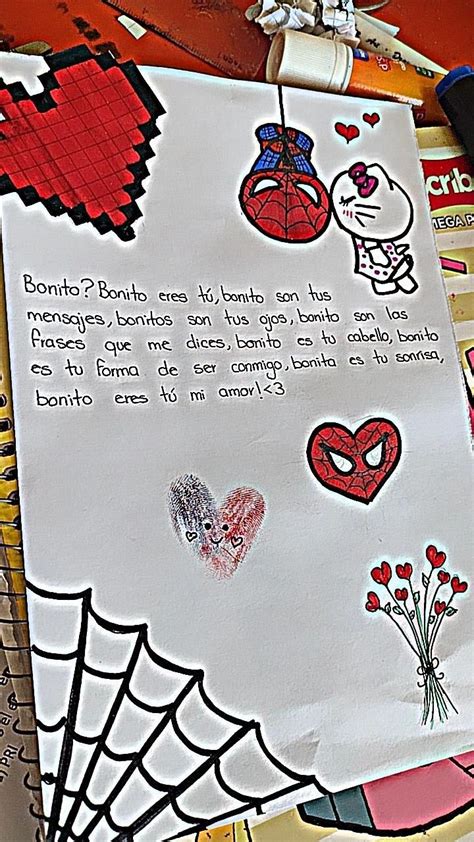 Bonito? Bonito eres tú, bonito son tus
mensajes, bonitos son tus ojos, bonito son las
frases que me dices, bonito es tu cabello, bonito
es tu forma de ser conmigo, bonita es tu sonrisa,
bonito eres tú mi amor!<3
crib
MEGA P